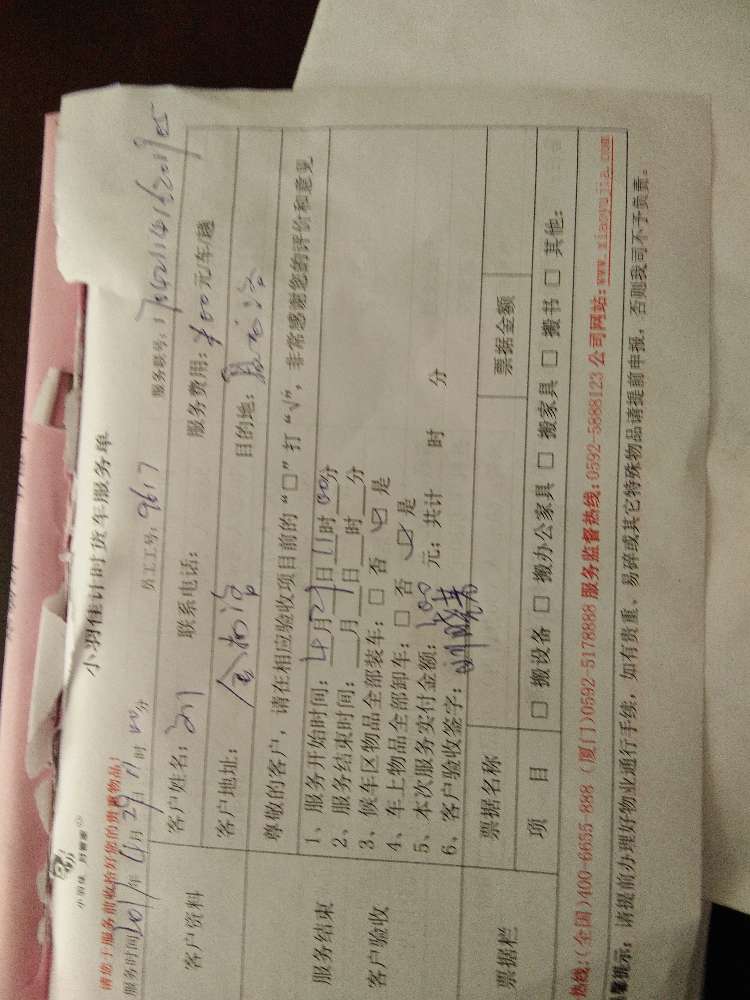 小羽佳计时货车服务单
请您于服务前收拾好您的贵重物品!
服务时间 年 月29日11时00分 员工工号: 9617 服务联号:
客户资料
客户姓名: 刘 联系电话: 服务费用: 400元/车/趟
客户地址: 目的地:
服务结束
客户验收
尊敬的客户, 请在相应验收项目前的“□”打“√”, 非常感谢您的评价和意见
1、服务开始时间: 4月29日11时00分
2、服务结束时间: __月__日__时__分
3、候车区物品全部装车: □ 否 ☑ 是
4、车上物品全部卸车: □ 否 ☑ 是
5、本次服务实付金额: 400 元; 共计 时 分
6、客户验收签字:
票据栏
票据名称 票据金额
项 目 □ 搬设备 □ 搬办公家具 □ 搬家具 □ 搬书 □ 其他:
热线:(全国)400-6655-888 (厦门)0592-5178888 服务监督热线: 0592-5888123 公司网站: www.xiaoyujia.com
提示: 请提前办理好物业通行手续, 如有贵重、易碎或其它特殊物品请提前申报, 否则我司不予负责。